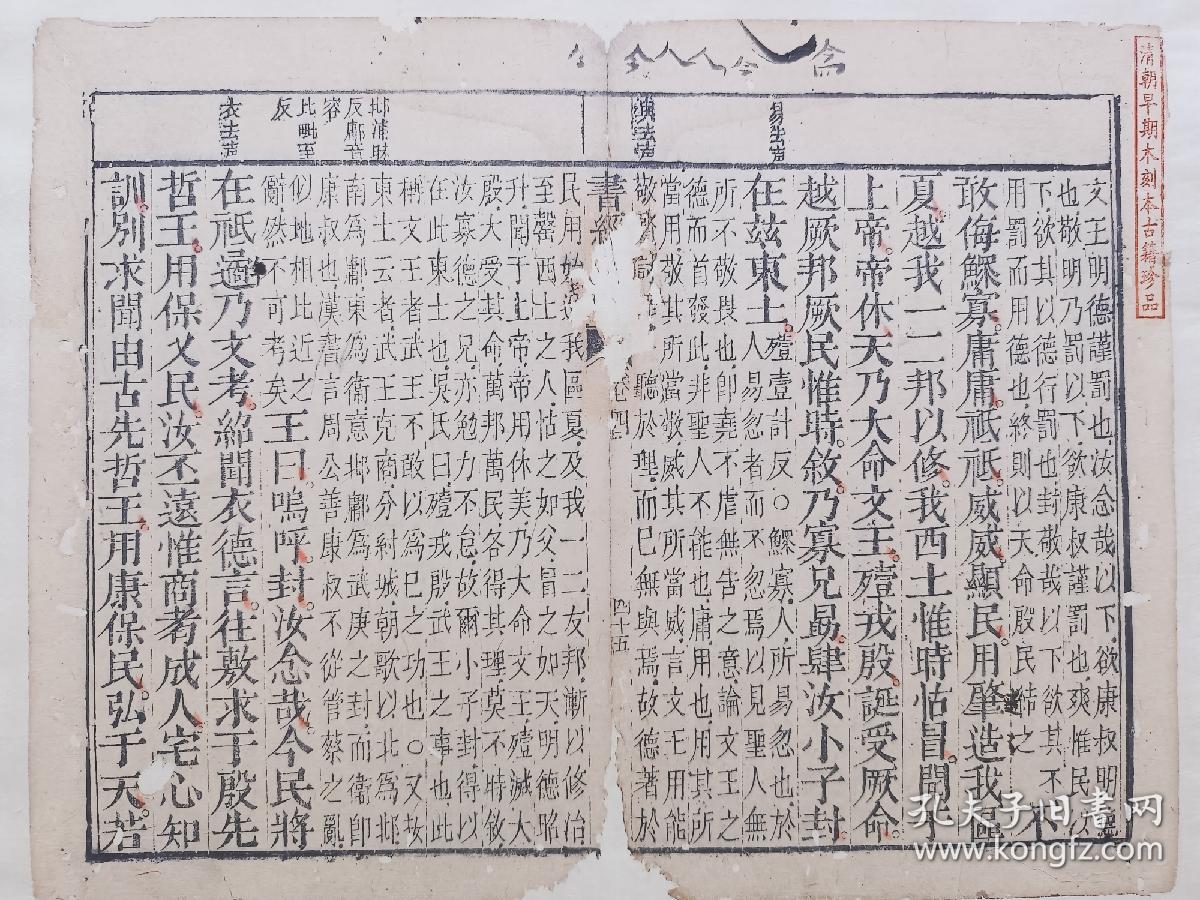 清朝早期木刻本古籍珍品
易去声
文王明德謹罰也汝念哉以下欲康叔明德
也敬明乃罰以下欲康叔謹罰也爽惟民以
下欲其以德行罰也封敬哉以下欲其不
用罰而用德也終則以天命殷民結之
不
敢侮鰥寡庸庸祗祗威威顯民用肇造我區
夏越我一二邦以修我西土惟時怙冒聞于
上帝帝休天乃大命文王殪戎殷誕受厥命
越厥邦厥民惟時敘乃寡兄勗肆汝小子封
在茲東土
殪壹計反○鰥寡人所易忽也於
人易忽者而不忽焉以見聖人無
所不敬畏也卽堯不虐無告之意論文王之
德而首發此非聖人不能也庸用也用其所
當用敬其所當敬威其所當威言文王用能
聽於理而已無與焉故德著於
書經
卷四
四十五
民用始造我區夏及我一二友邦漸以修治
至罄西土之人怙之如父冒之如天明德昭
升聞于上帝帝用休美乃大命文王殪滅大
殷大受其命萬邦萬民各得其理莫不時敘
汝寡德之兄亦勉力不怠故爾小子封得以
在此東土也吳氏曰殪戎殷武王之事也此
稱文王者武王不敢以爲己之功也○又按
東土云者武王克商分紂城朝歌以北爲邶
南爲鄘東爲衛意邶鄘爲武庚之封而衛卽
康叔也漢書言周公善康叔不從管蔡之亂
似地相比近之
辭然不可考矣
王曰嗚呼封汝念哉今民將
在祗遹乃文考紹聞衣德言往敷求于殷先
哲王用保乂民汝丕遠惟商考成人宅心知
訓別求聞由古先哲王用康保民弘于天若
邶蒲昧
反鄘音
容
比毗至
反
衣去声
孔夫子旧書网
www.kongfz.com